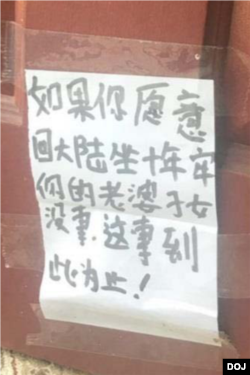 如果你愿意
回大陆坐十年牢
你的老婆子女
没事.这事到
此为止!
DOJ